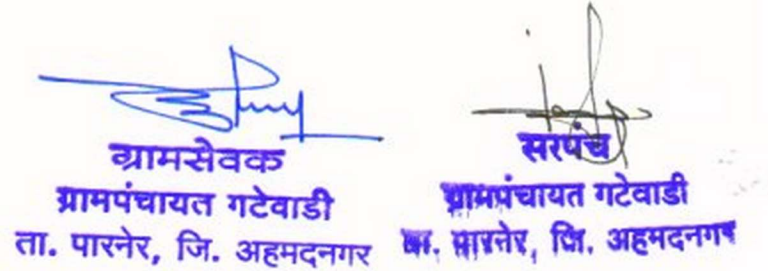 ग्रामसेवक
ग्रामपंचायत गटेवाडी
ता. पारनेर, जि. अहमदनगर
सरपंच
ग्रामपंचायत गटेवाडी
ता. पारनेर, जि. अहमदनगर